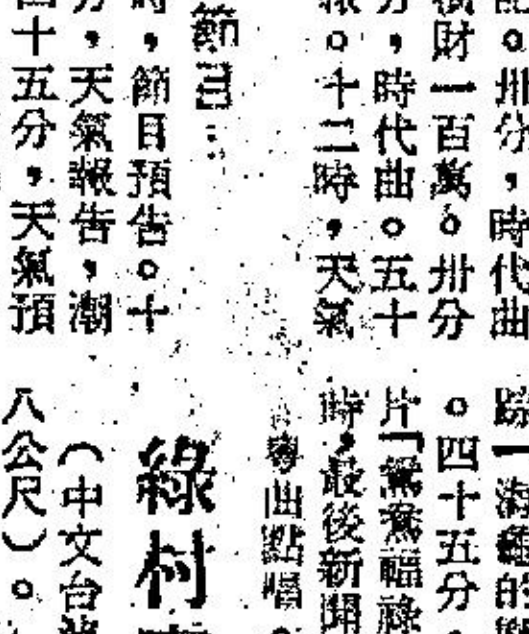 記。卅分，時代曲
橫財一百萬。卅分
分，時代曲。五十
報。十二時，天氣
節目：
時，節目預告。十
分，天氣報告，潮
四十五分，天氣預
踪一
的
。四十五分
片「鴛鴦福祿
時，最後新聞
粵曲點唱。
綠村
（中文台
八公尺）。